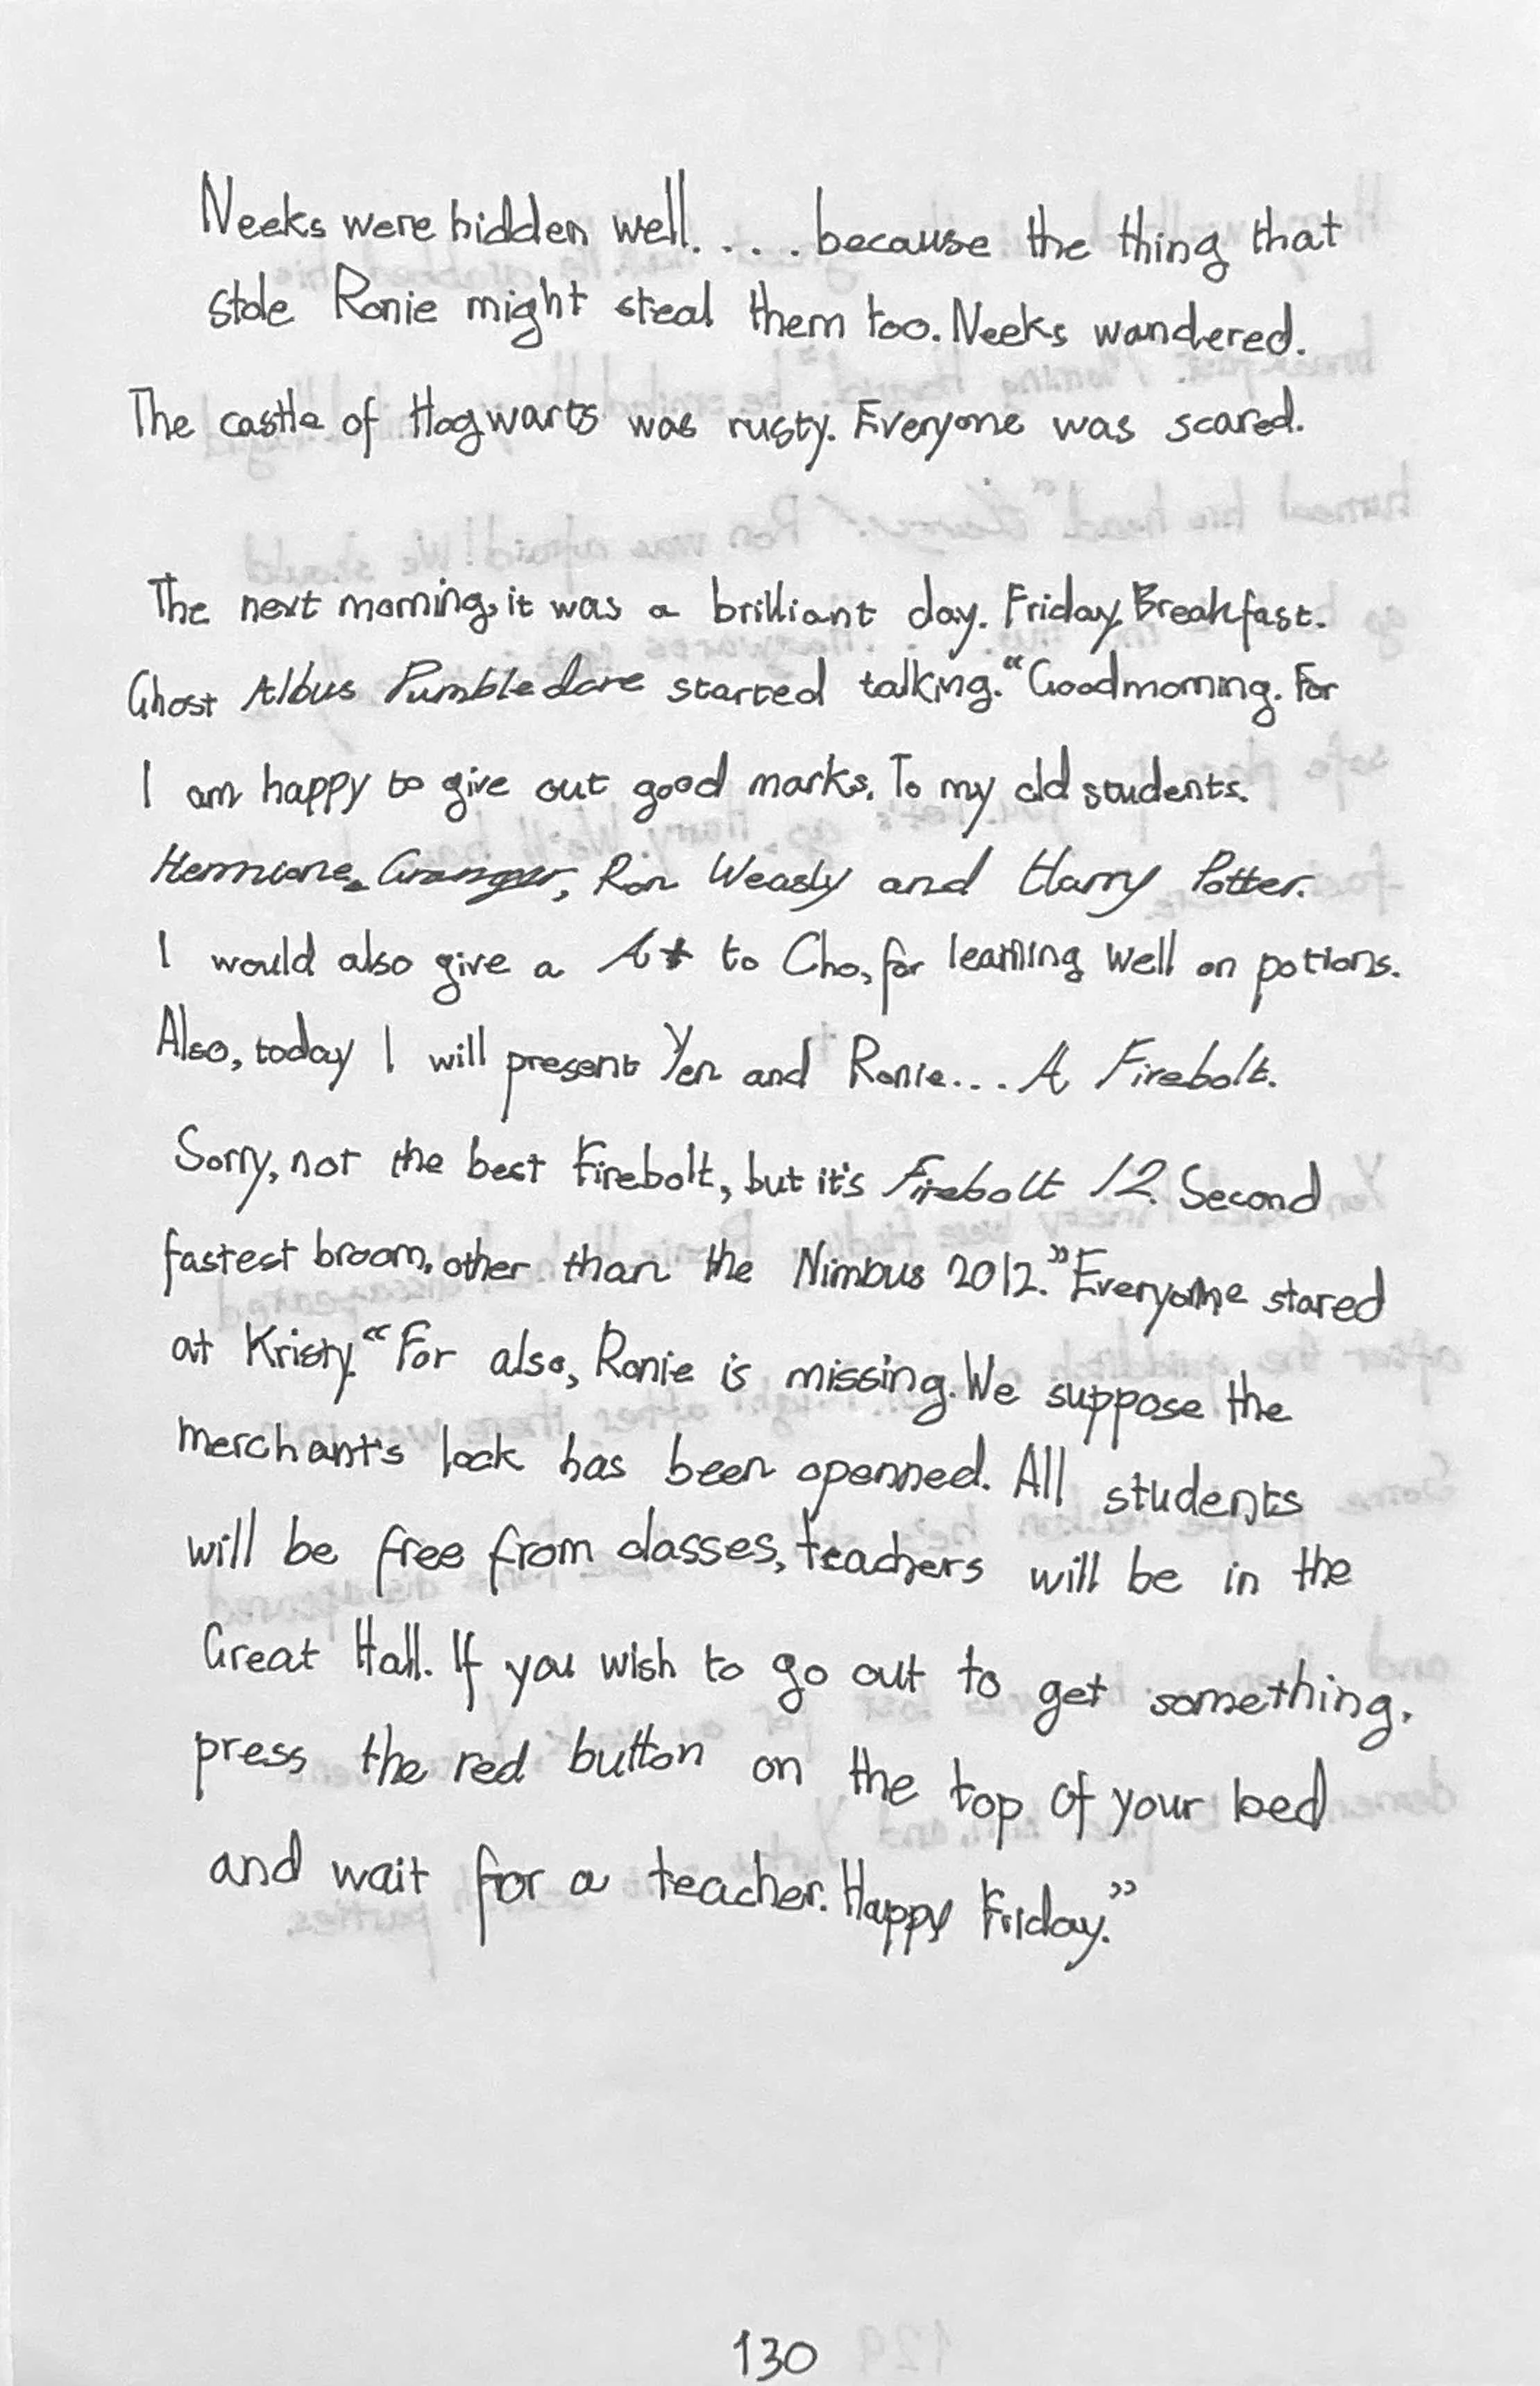 Neeks were hidden well. . . . because the thing that
stole Ronie might steal them too. Neeks wandered.
The castle of Hogwarts was rusty. Everyone was scared.
The next morning, it was a brilliant day. Friday. Breakfast.
Ghost Albus Dumbledore started talking. “Goodmorning. For
I am happy to give out good marks. To my old students.
Hermione Granger, Ron Weasly and Harry Potter.
I would also give a A+ to Cho, for learning well on potions.
Also, today I will present Yen and Ronie... A Firebolt.
Sorry, not the best Firebolt, but it's Firebolt 12. Second
fastest broom, other than the Nimbus 2012.” Everyone stared
at Kristy. “For also, Ronie is missing. We suppose the
merchant's lock has been openned. All students
will be free from classes, teachers will be in the
Great Hall. If you wish to go out to get something,
press the red button on the top of your bed
and wait for a teacher. Happy Friday.”
130